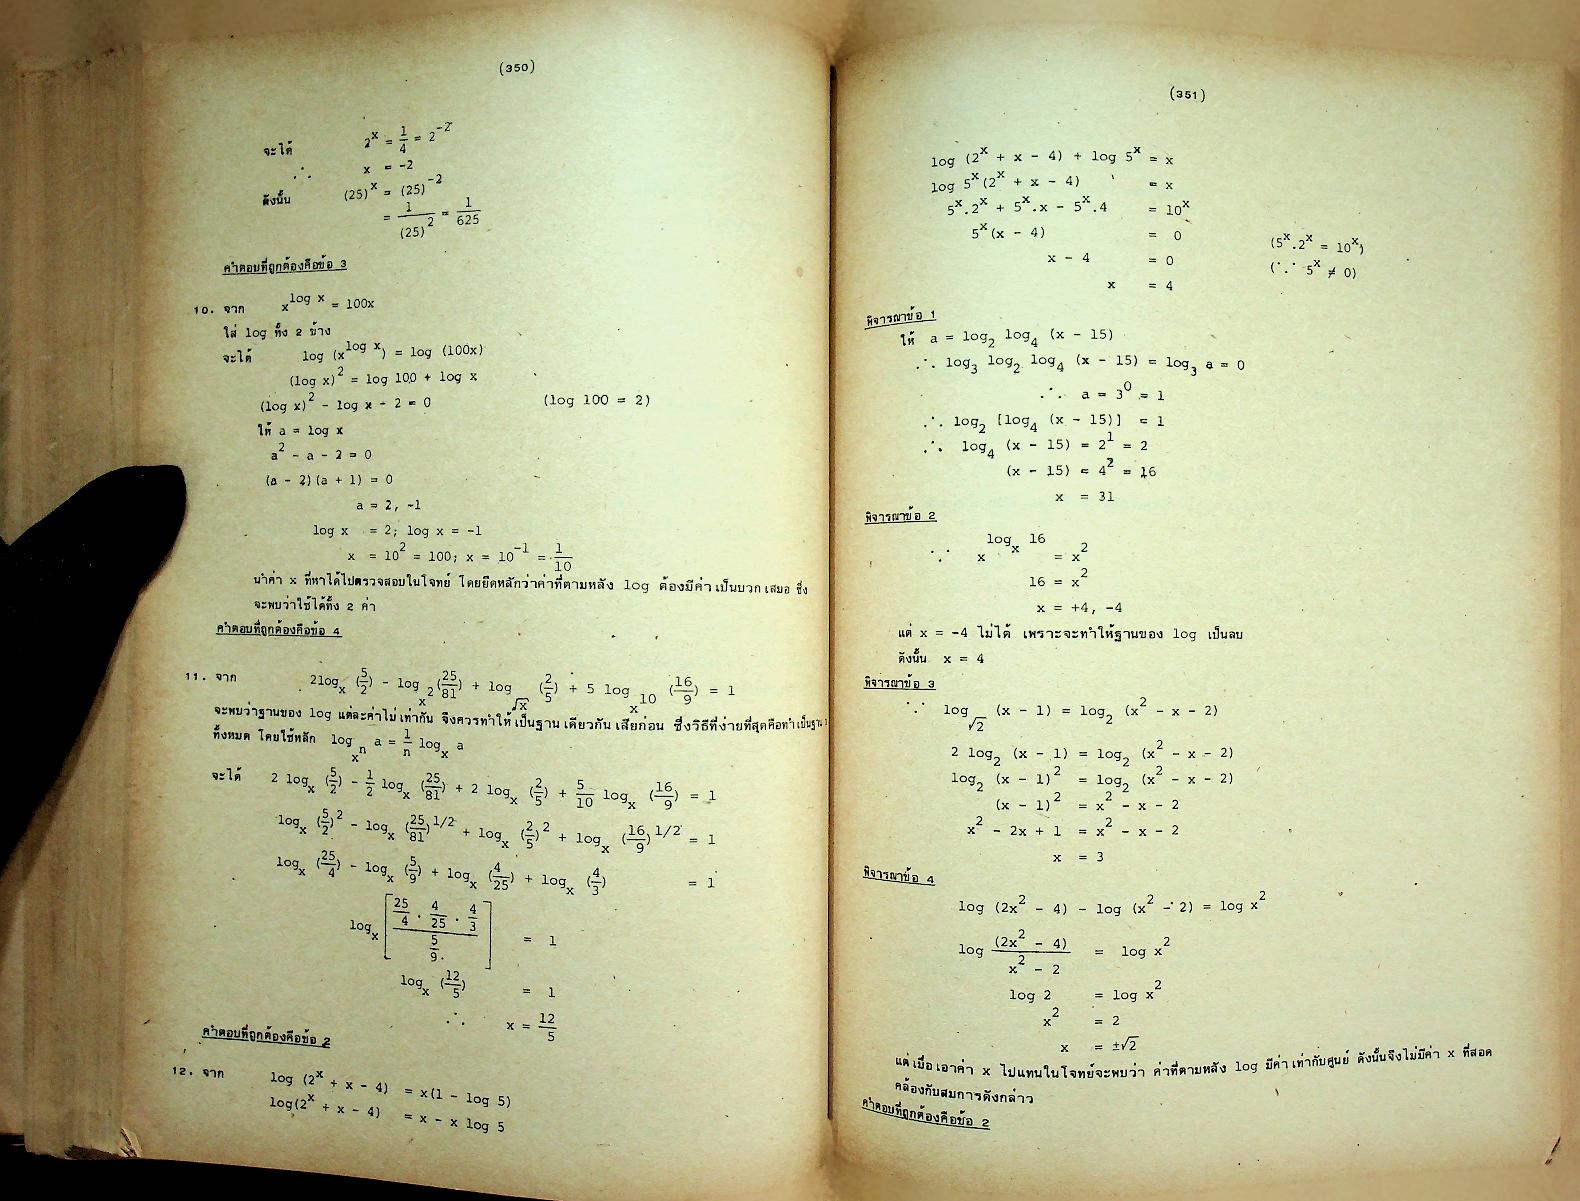 (350)
จะได้ 2^x = 1/4 = 2^-2
∴ x = -2
ดังนั้น (25)^x = (25)^-2
= 1/(25)^2 = 1/625
คำตอบที่ถูกต้องคือข้อ 3
10. จาก x^log x = 100x
ใส่ log ทั้ง 2 ข้าง
จะได้ log (x^log x) = log (100x)
(log x)^2 = log 100 + log x
(log x)^2 - log x - 2 = 0 (log 100 = 2)
ให้ a = log x
a^2 - a - 2 = 0
(a - 2)(a + 1) = 0
a = 2, -1
log x = 2; log x = -1
x = 10^2 = 100; x = 10^-1 = 1/10
นำค่า x ที่หาได้ไปตรวจสอบในโจทย์ โดยยึดหลักว่าค่าที่ตามหลัง log ต้องมีค่าเป็นบวกเสมอ ซึ่ง
จะพบว่าใช้ได้ทั้ง 2 ค่า
คำตอบที่ถูกต้องคือข้อ 4
11. จาก 2log_x (5/2) - log_x^2 (25/81) + log_√x (2/5) + 5 log_x^10 (16/9) = 1
จะพบว่าฐานของ log แต่ละค่าไม่เท่ากัน จึงควรทำให้เป็นฐานเดียวกันเสียก่อน ซึ่งวิธีที่ง่ายที่สุดคือทำเป็นฐาน
ทั้งหมด โดยใช้หลัก log_x^n a = 1/n log_x a
จะได้ 2 log_x (5/2) - 1/2 log_x (25/81) + 2 log_x (2/5) + 5/10 log_x (16/9) = 1
log_x (5/2)^2 - log_x (25/81)^1/2 + log_x (2/5)^2 + log_x (16/9)^1/2 = 1
log_x (25/4) - log_x (5/9) + log_x (4/25) + log_x (4/3) = 1
log_x [(25/4 . 4/25 . 4/3)/(5/9)] = 1
log_x (12/5) = 1
∴ x = 12/5
คำตอบที่ถูกต้องคือข้อ 2
12. จาก log (2^x + x - 4) = x(1 - log 5)
log(2^x + x - 4) = x - x log 5
(351)
log (2^x + x - 4) + log 5^x = x
log 5^x(2^x + x - 4) = x
5^x.2^x + 5^x.x - 5^x.4 = 10^x
5^x(x - 4) = 0 (5^x.2^x = 10^x)
x - 4 = 0 (∵ 5^x ≠ 0)
x = 4
พิจารณาข้อ 1
ให้ a = log_2 log_4 (x - 15)
∴ log_3 log_2 log_4 (x - 15) = log_3 a = 0
∴ a = 3^0 = 1
∴ log_2 [log_4 (x - 15)] = 1
∴ log_4 (x - 15) = 2^1 = 2
(x - 15) = 4^2 = 16
x = 31
พิจารณาข้อ 2
∵ x^log_x 16 = x^2
16 = x^2
x = +4, -4
แต่ x = -4 ไม่ได้ เพราะจะทำให้ฐานของ log เป็นลบ
ดังนั้น x = 4
พิจารณาข้อ 3
∵ log_√2 (x - 1) = log_2 (x^2 - x - 2)
2 log_2 (x - 1) = log_2 (x^2 - x - 2)
log_2 (x - 1)^2 = log_2 (x^2 - x - 2)
(x - 1)^2 = x^2 - x - 2
x^2 - 2x + 1 = x^2 - x - 2
x = 3
พิจารณาข้อ 4
log (2x^2 - 4) - log (x^2 - 2) = log x^2
log (2x^2 - 4)/(x^2 - 2) = log x^2
log 2 = log x^2
x^2 = 2
x = ±√2
แต่เมื่อเอาค่า x ไปแทนในโจทย์จะพบว่า ค่าที่ตามหลัง log มีค่าเท่ากับศูนย์ ดังนั้นจึงไม่มีค่า x ที่สอด
คล้องกับสมการดังกล่าว
คำตอบที่ถูกต้องคือข้อ 2